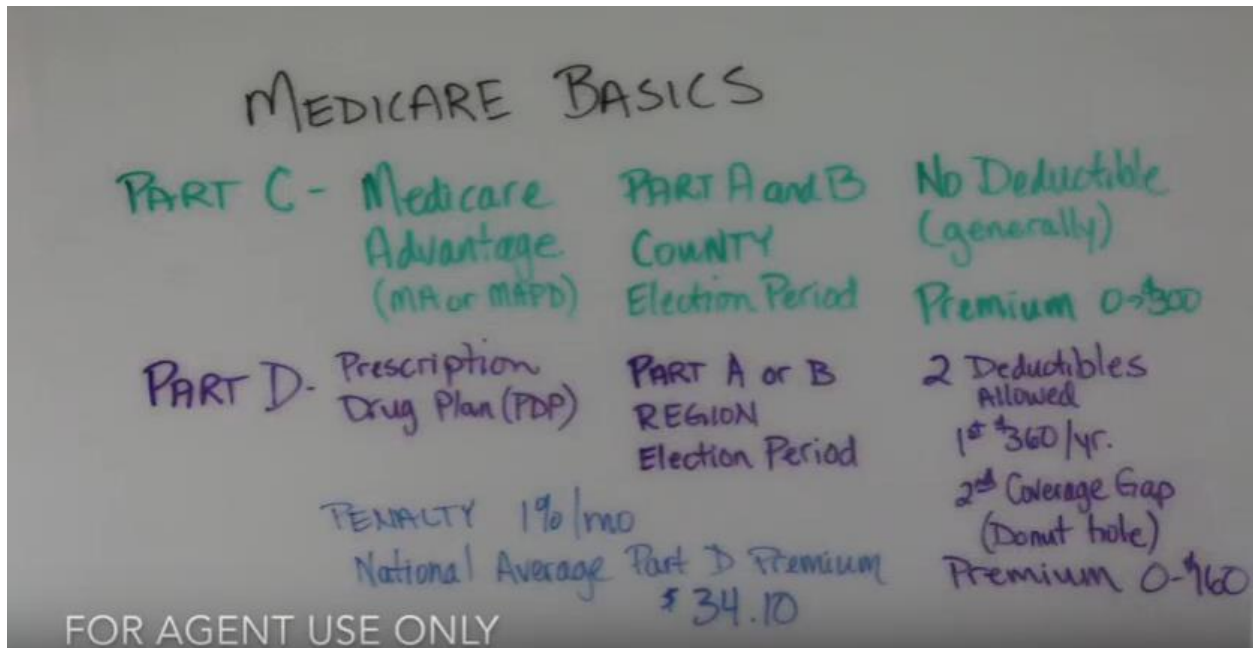 MEDICARE BASICS
PART C - Medicare Advantage (MA or MAPD)
PART A and B
COUNTY
Election Period
No Deductible
(generally)
Premium 0->$300
PART D- Prescription
Drug Plan (PDP)
PART A or B
REGION
Election Period
2 Deductibles
Allowed
1st $360/yr.
2nd Coverage Gap
(Donut hole)
Premium 0-$160
PENALTY 1%/mo
National Average Part D Premium
$34.10
FOR AGENT USE ONLY